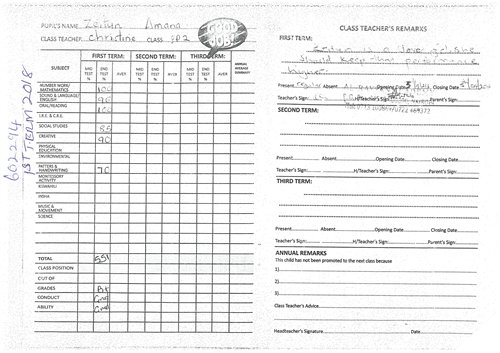 PUPIL'S NAME Zeitun Amana
CLASS TEACHER Christine CLASS PP2
602294
1ST TERM 2018
FIRST TERM: SECOND TERM: THIRD TERM:
SUBJECT MID TEST % END TEST % AVER MID TEST % END TEST % AVER MID TEST % END TEST % AVER ANNUAL AVERAGE SUMMARY
NUMBER WORK/ MATHEMATICS 100
SOUND & LANGUAGE/ ENGLISH 96
ORAL/READING 100
I.R.E. & C.R.E.
SOCIAL STUDIES 85
CREATIVE 90
PHYSICAL EDUCATION
ENVIRONMENTAL
PATTERS & HANDWRITING 70
MONTESSORY ACTIVITY
KISWAHILI
INSHA
MUSIC & MOVEMENT
SCIENCE
TOTAL 551
CLASS POSITION
OUT OF
GRADES
CONDUCT Good
ABILITY Good
CLASS TEACHER'S REMARKS
FIRST TERM:
Zeitun is a
should keep performance
higher.
Present regular Absent Opening Date Closing Date
Teacher's Sign: Parent's Sign:
SECOND TERM:
Present Absent Opening Date Closing Date
Teacher's Sign: H/Teacher's Sign: Parent's Sign:
THIRD TERM:
Present Absent Opening Date Closing Date
Teacher's Sign: H/Teacher's Sign: Parent's Sign:
ANNUAL REMARKS
This child has not been promoted to the next class because
1)
2)
3)
Class Teacher's Advice
Headteacher's Signature Date